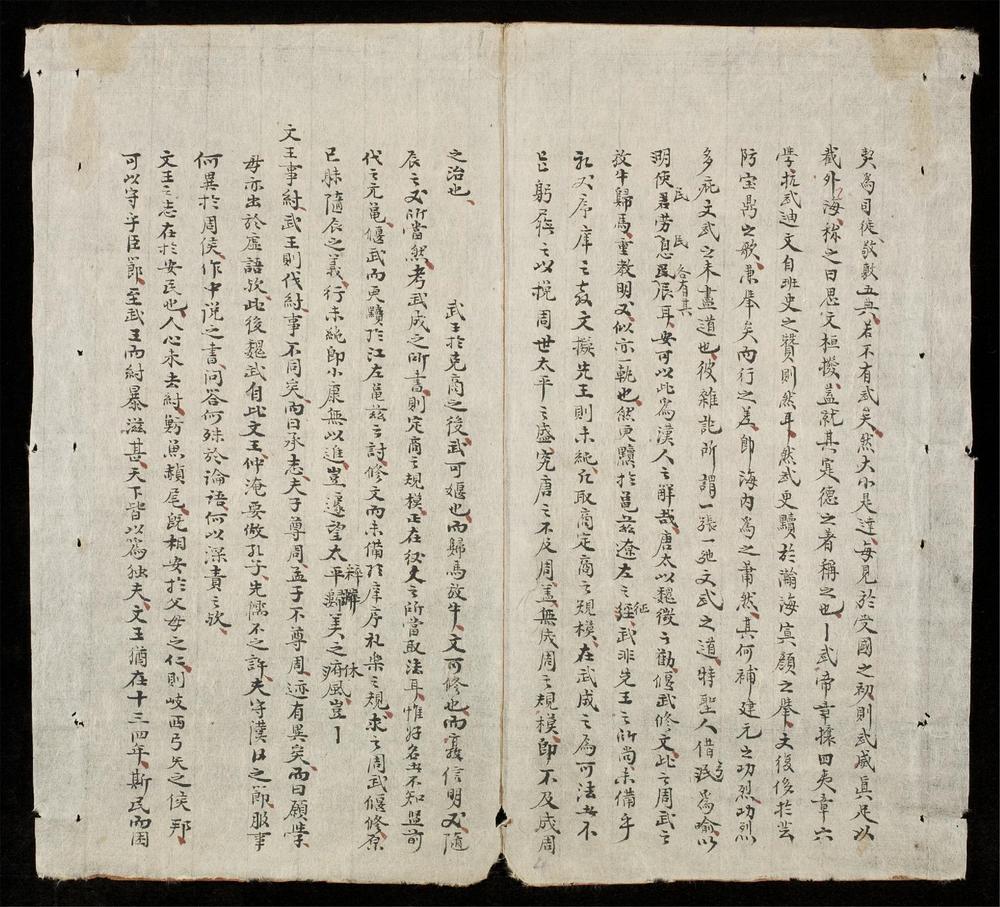 契為司徒敬敷五典若不有武矣然大小是達每見於受國之初則武威真足以
截外海秫之曰思文桓撥蓋就其寔德之著稱之也一武帝章攘四夷章六
學抗武迪文自班史之贊則然耳然武更黷於瀚海寘顏之舉文後侈於芸
防宝鼎之歌兼舉矣而行之差即海內為之蕭然其何補建元之功烈功烈
多疵文武之未盡道也彼雜訛所謂一張一弛文武之道特聖人借民弓為喻以
明使君劳民息民辰各有其耳安可以此為漢人之解哉唐太以魏徵之勸偃武修文此之周武之
放牛歸馬重教明义似亦一軌也然更黷於邕兹遼左之征武非先王之所尚未備乎
礼义序庠之教文擬先王則未純允取商定商之規模在武成之為可法女不
皆躬蹈之以挽周世太平之盛宛唐之不及周盖無成周之規模即不及成周
之治也
武王於克商之後武可偃也而歸馬放牛文可修也而惇信明义隨
辰之义所當然考武成之所書則定商之規模正在後人之所當取法耳惟好名者不知盟前
代之元龜偃武而更黷於江左龜兹之討修文而未備於庠序礼樂之規求之周武偃修原
已昧隨辰之義行未純即小康無以進豈遽望太平辭歸美之府休風豈一
文王事紂武王則伐紂事不同矣而曰承志夫子尊周孟子不尊周迹有異矣而曰願學
毋亦出於虛語欤此後魏武自比文王仲淹要做孔子先儒不之許夫守漢臣之節服事
何異於周侯作中說之書問答何殊於論語何以深責之欤
文王之志在於安民也人心未去紂魴魚頳尾既相安於父母之仁則岐西弓矢之侯邦
可以守乎臣節至武王而紂暴滋甚天下皆以為独夫文王猶在十三四年斯民而困